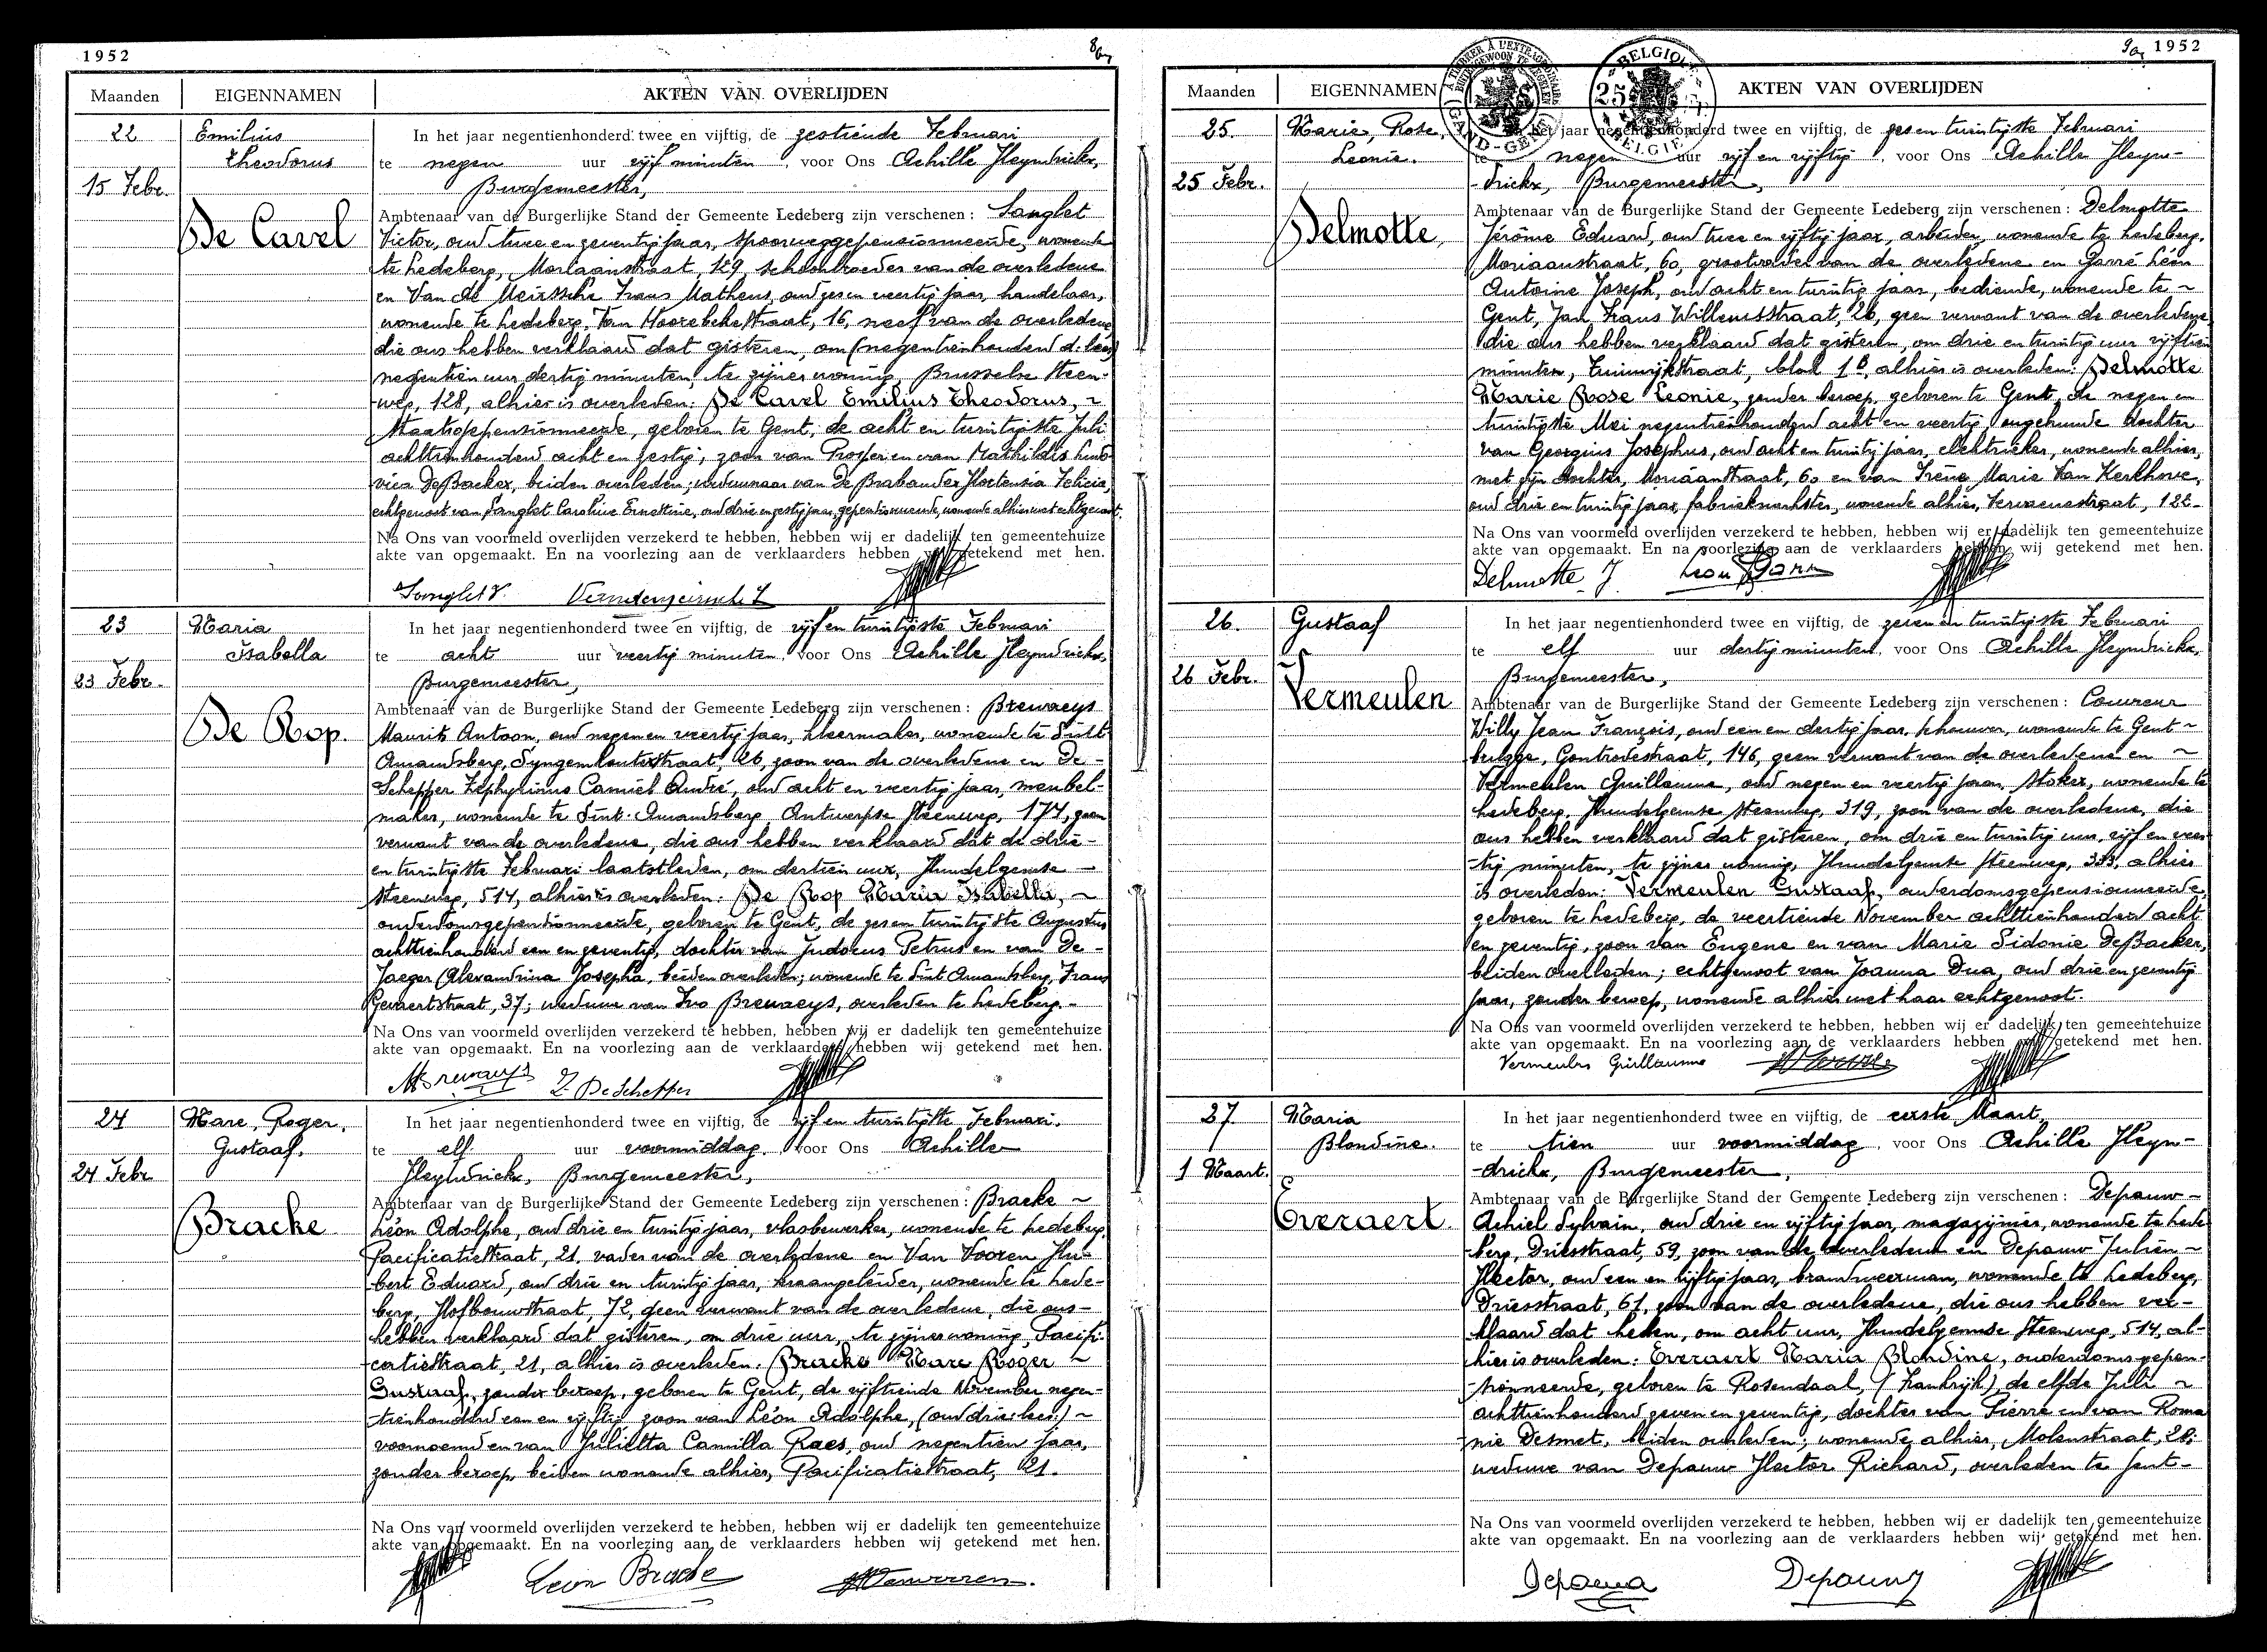 1952
Maanden EIGENNAMEN AKTEN VAN OVERLIJDEN
22 Emilius In het jaar negentienhonderd twee en vijftig, de zestiende Februari
Theodorus te negen uur vijf minuten, voor Ons Achille Heyndrickx,
15 Febr. Burgemeester,
Ambtenaar van de Burgerlijke Stand der Gemeente Ledeberg zijn verschenen : Langlet
De Cavel Victor, oud twee en zeventig jaar, spoorweggepensionneerde, wonende
te Ledeberg, Moriaanstraat, 129, schoonbroeder van de overledene
en Van de Meirssche Frans Matheus, oud zes en veertig jaar, handelaar,
wonende te Ledeberg, Van Hoorebekestraat, 16, neef van de overledene
die ons hebben verklaard dat gisteren, om (negentienhonderd d. lees)
negentien uur dertig minuten, te zijner woning, Brusselse steen-
weg, 128, alhier is overleden: De Cavel Emilius Theodorus, ~
Staatsgepensionneerde, geboren te Gent, de acht en twintigste Juli
achttienhonderd acht en zestig, zoon van Prosper en van Mathildis Ludo-
vica De Backer, beiden overleden; weduwnaar van De Brabander Hortensia Felicia,
echtgenoot van Langlet Caroline Ernestine, oud drie en zestig jaar, gepensionneerde, wonende alhier met echtgenoot.
Na Ons van voormeld overlijden verzekerd te hebben, hebben wij er dadelijk ten gemeentehuize
akte van opgemaakt. En na voorlezing aan de verklaarders hebben wij getekend met hen.
Langlet V.
23 Maria In het jaar negentienhonderd twee en vijftig, de vijf en twintigste Februari
Isabella te acht uur veertig minuten, voor Ons Achille Heyndrickx,
23 Febr. Burgemeester,
Ambtenaar van de Burgerlijke Stand der Gemeente Ledeberg zijn verschenen : Brewaeys
De Roop. Maurits Antoon, oud negen en veertig jaar, kleermaker, wonende te Sint
Amandsberg, 26, zoon van de overledene en De-
Schepper Zephyrinus Camiel André, oud acht en veertig jaar, meubel-
maker, wonende te Sint-Amandsberg, Antwerpse steenweg, 174, geen
verwant van de overledene, die ons hebben verklaard dat de drie-
en twintigste Februari laatstleden, om dertien uur, Hundelgemse
steenweg, 514, alhier is overleden: De Roop Maria Isabella, ~
ouderdomsgepensionneerde, geboren te Gent, de zes en twintigste Augustus
achttienhonderd een en zeventig, dochter van Judocus Petrus en van De-
Jaeger Alexandrina Josepha, beiden overleden; wonende te Sint Amandsberg, Frans
Gevaertstraat, 37; weduwe van Ivo Brewaeys, overleden te Ledeberg.-
Na Ons van voormeld overlijden verzekerd te hebben, hebben wij er dadelijk ten gemeentehuize
akte van opgemaakt. En na voorlezing aan de verklaarders hebben wij getekend met hen.
M Brewaeys Z. De Schepper
24 Marc, Roger, In het jaar negentienhonderd twee en vijftig, de vijf en twintigste Februari.
Gustaaf. te elf uur voormiddag. voor Ons Achille
24 Febr Heyndrickx, Burgemeester,
Ambtenaar van de Burgerlijke Stand der Gemeente Ledeberg zijn verschenen : Bracke ~
Bracke Léon Adolphe, oud drie en twintig jaar, vlasbewerker, wonende te Ledeberg,
Pacificatiestraat, 21, vader van de overledene en Van Vooren Hu-
bert Eduard, oud drie en twintig jaar, kraangeleider, wonende te Lede-
berg, Hofbouwstraat, 72, geen verwant van de overledene, die ons-
hebben verklaard dat gisteren, om drie uur, te zijner woning, Pacifi-
catiestraat, 21, alhier is overleden: Bracke Marc Roger ~
Gustaaf, zonder beroep, geboren te Gent, de vijftiende November negen-
tienhonderd een en vijftig, zoon van Léon Adolphe, (oud drie: lees:) ~
voornoemd en van Julietta Camilla Raes, oud negentien jaar,
zonder beroep, beiden wonende alhier, Pacificatiestraat, 21.
Na Ons van voormeld overlijden verzekerd te hebben, hebben wij er dadelijk ten gemeentehuize
akte van opgemaakt. En na voorlezing aan de verklaarders hebben wij getekend met hen.
Leon Bracke HVanvooren.
1952
Maanden EIGENNAMEN AKTEN VAN OVERLIJDEN
BELGIQUE 25 BELGIE
GAND-GENT
25. Marie, Rose, In het jaar negentienhonderd twee en vijftig, de zes en twintigste Februari
Leonie. te negen uur vijf en vijftig, voor Ons Achille Heyn-
25 Febr. -drickx, Burgemeester,
Ambtenaar van de Burgerlijke Stand der Gemeente Ledeberg zijn verschenen : Delmotte
Delmotte, Jérôme Eduard, oud twee en vijftig jaar, arbeider, wonende te Ledeberg,
Moriaanstraat, 60, grootvader van de overledene en Garré Léon
Antoine Joseph, oud acht en twintig jaar, bediende, wonende te ~
Gent, Jan Frans Willemsstraat, 26, geen verwant van de overledene
die ons hebben verklaard dat gisteren, om drie en twintig uur vijftien
minuten, Tuinwijkstraat, blok 1B, alhier is overleden: Delmotte
Marie Rose Leonie, zonder beroep, geboren te Gent, de negen en
twintigste Mei negentienhonderd acht en veertig, ongehuwde dochter
van Georgius Josephus, oud acht en twintig jaar, elektrieker, wonende alhier,
met zijn dochter, Moriaanstraat, 60 en van Irène Marie Van Kerkhove,
oud drie en twintig jaar, fabriekwerkster, wonende alhier, Vervaenestraat, 122-
Na Ons van voormeld overlijden verzekerd te hebben, hebben wij er dadelijk ten gemeentehuize
akte van opgemaakt. En na voorlezing aan de verklaarders hebben wij getekend met hen.
Delmotte J
26. Gustaaf In het jaar negentienhonderd twee en vijftig, de zeven en twintigste Februari
te elf uur dertig minuten, voor Ons Achille Heyndrickx,
26 Febr. Burgemeester,
Vermeulen Ambtenaar van de Burgerlijke Stand der Gemeente Ledeberg zijn verschenen : Couvreur
Willy Jean François, oud een en dertig jaar, schouwer, wonende te Gent ~
brugge, Gontrodestraat, 146, geen verwant van de overledene en ~
Vermeulen Guillaume, oud negen en veertig jaar, stoker, wonende te
Ledeberg, Hundelgemse steenweg, 319, zoon van de overledene, die
ons hebben verklaard dat gisteren, om drie en twintig uur, vijf en veer-
-tig minuten, te zijner woning, Hundelgemse steenweg, 333, alhier
is overleden: Vermeulen Gustaaf, ouderdomsgepensionneerde,
geboren te Ledeberg, de veertiende November achttienhonderd acht
en zeventig, zoon van Eugene en van Marie Sidonie De Backer,
beiden overleden; echtgenoot van Joanna Dua, oud drie en zeventig
jaar, zonder beroep, wonende alhier met haar echtgenoot.
Na Ons van voormeld overlijden verzekerd te hebben, hebben wij er dadelijk ten gemeentehuize
akte van opgemaakt. En na voorlezing aan de verklaarders hebben wij getekend met hen.
Vermeulen Guillaume
27 Maria In het jaar negentienhonderd twee en vijftig, de eerste Maart,
Blondine. te tien uur voormiddag, voor Ons Achille Heyn-
1 Maart. -drickx, Burgemeester,
Ambtenaar van de Burgerlijke Stand der Gemeente Ledeberg zijn verschenen : Depauw-
Everaert. Achiel Sylvain, oud drie en vijftig jaar, magazijnier, wonende te Lede-
-berg, Driesstraat, 59, zoon van de overledene en Depauw Julien ~
Hector, oud een en vijftig jaar, brandweerman, wonende te Ledeberg,
Driesstraat, 61, zoon van de overledene, die ons hebben ver-
klaard dat heden, om acht uur, Hundelgemse steenweg, 514, al-
hier is overleden: Everaert Maria Blondine, ouderdomsgepen-
-sionneerde, geboren te Rosendaal, (Frankrijk), de elfde Juli ~
achttienhonderd zeven en zeventig, dochter van Pierre en van Roma
nie Desmet, beiden overleden; wonende alhier, Molenstraat, 28;
weduwe van Depauw Hector Richard, overleden te Gent-
Na Ons van voormeld overlijden verzekerd te hebben, hebben wij er dadelijk ten gemeentehuize
akte van opgemaakt. En na voorlezing aan de verklaarders hebben wij getekend met hen.
Depauw Depauw J